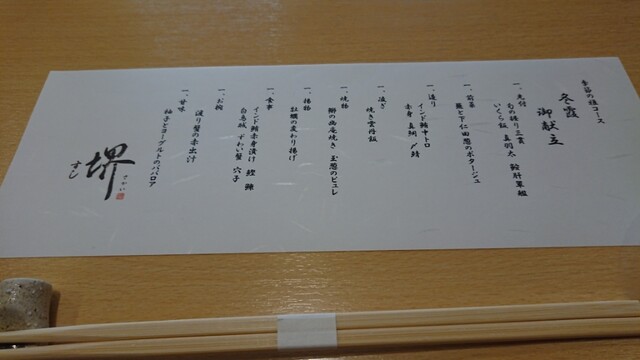 季節の極コース
冬霞 御献立
一、先付
旬の鮨り三貫
いくら飯 真羽太 鮟肝軍艦
一、前菜
蕪と下仁田葱のポタージュ
一、造り
インド鮪中トロ
赤身 真鯛 〆鯖
一、凌ぎ
焼き雲丹飯
一、焼物
鰤の幽庵焼き 玉葱のピュレ
一、揚物
牡蠣の変わり揚げ
一、食事
インド鮪赤身漬け 鰹 鰊
白烏賊 ずわい蟹 穴子
一、お椀
渡り蟹の赤出汁
一、甘味
柚子とヨーグルトのババロア
堺
さかい
すし